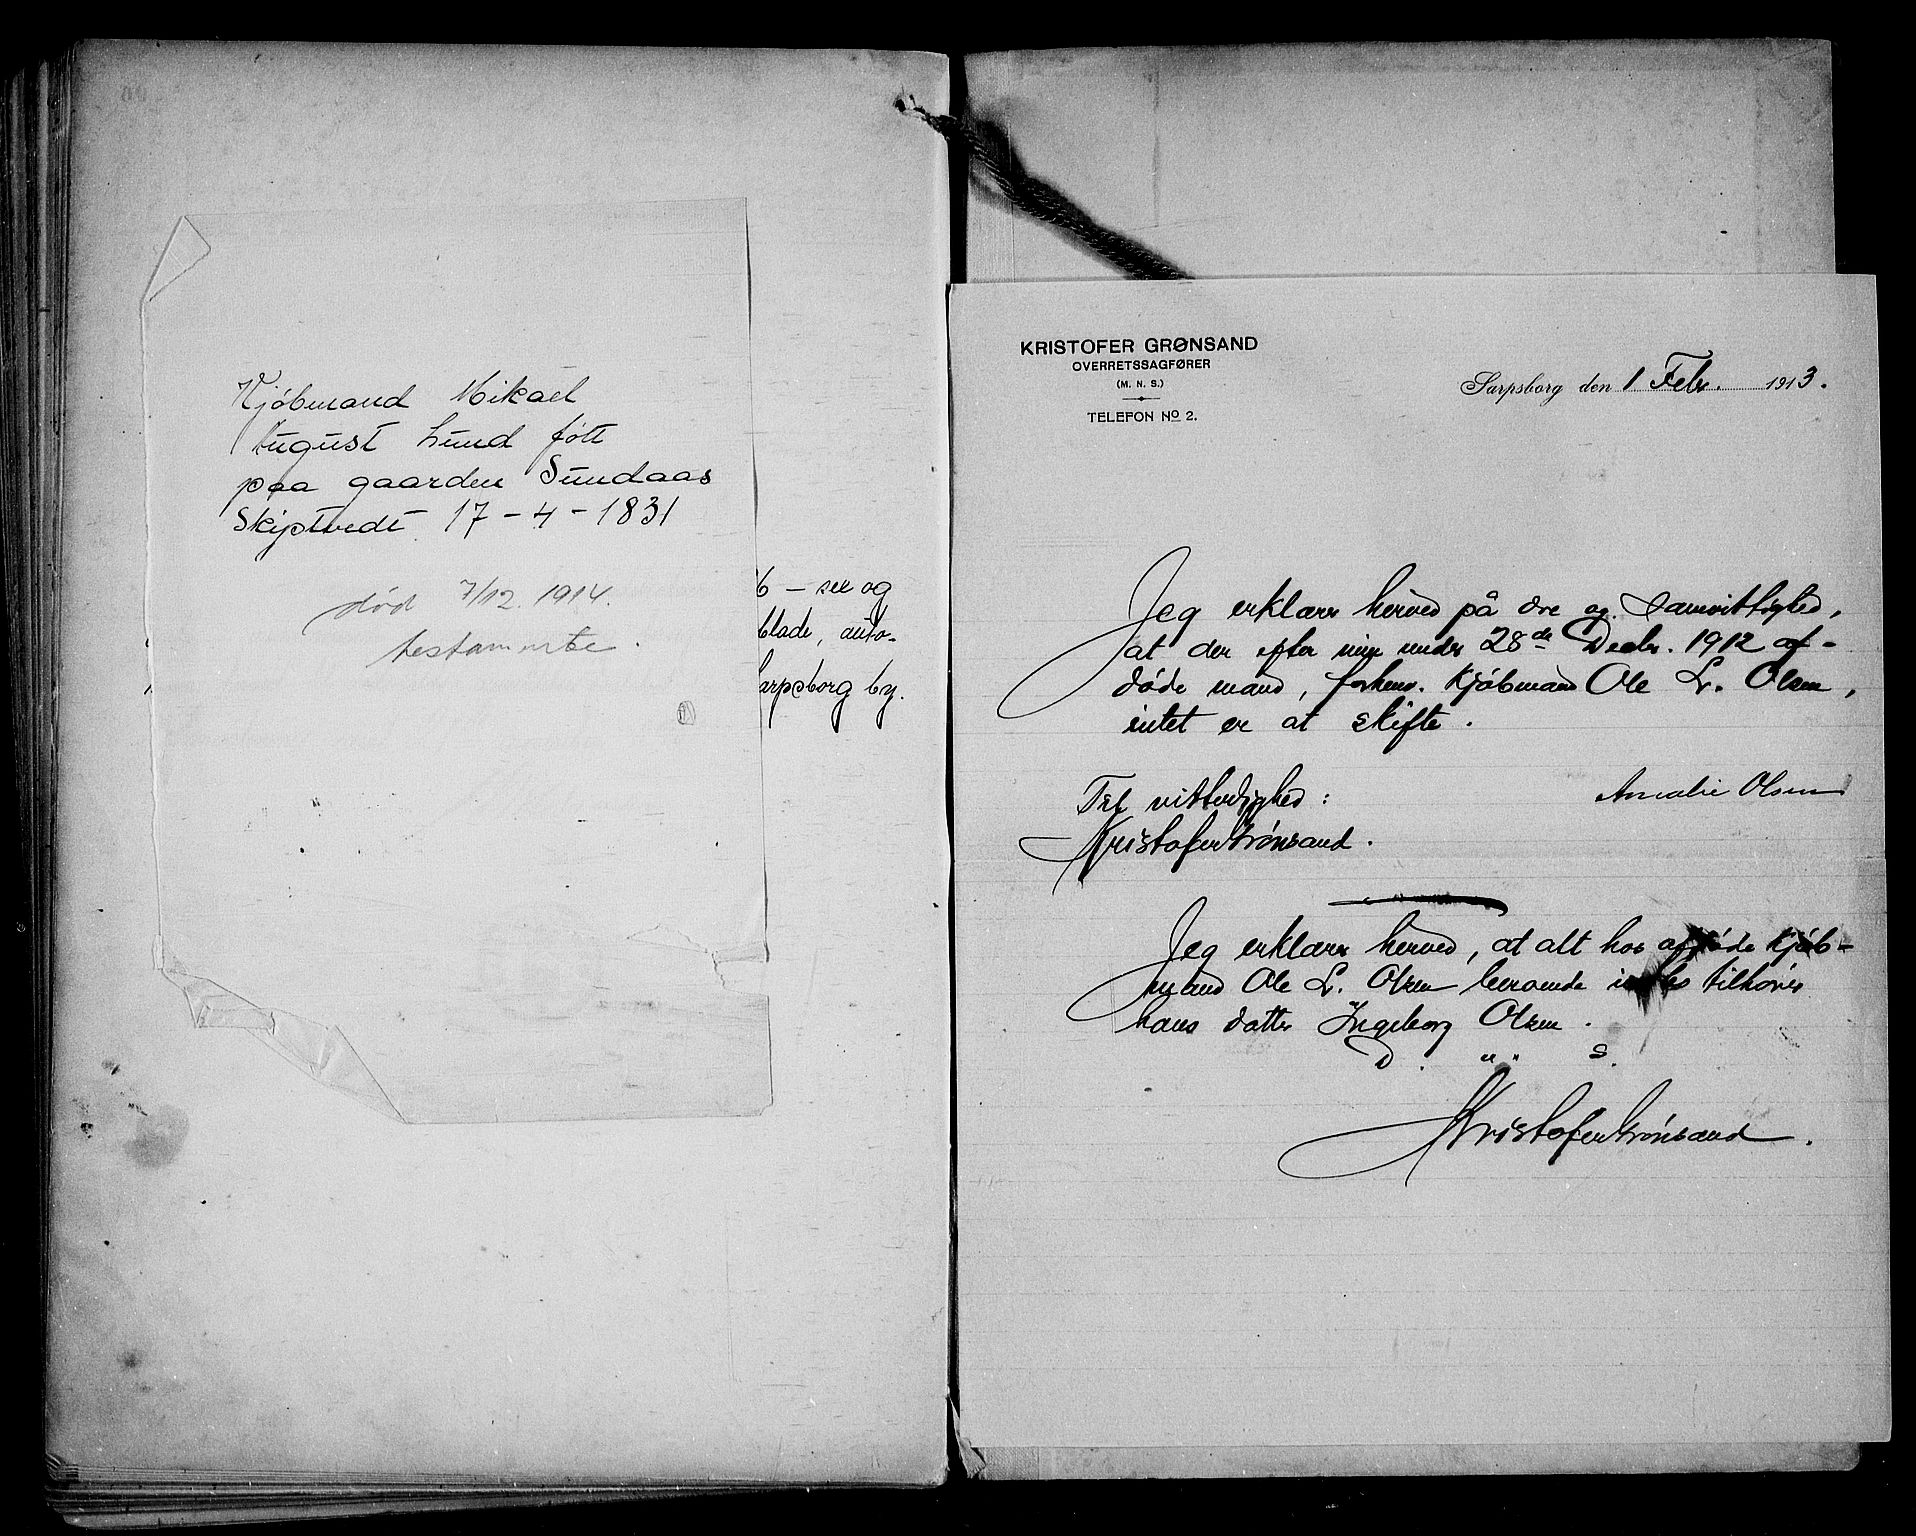 Kjöbmand Mikael
August Lund fött
paa gaarden Sundaas
Skiptvedt 17-4-1831
död 7/12. 1914.
testamente.
6 – see og
blade, auto-
arpsborg by.
KRISTOFER GRØNSAND
OVERRETSSAGFØRER
(M. N. S.)
TELEFON No 2.
Sarpsborg den 1 Febr. 1913.
Jeg erklærer herved på ære og samvittighed,
at der efter min under 28de Decbr. 1912 af-
döde mand, forhenv. kjöbmand Ole L. Olsen,
intet er at skifte.
Amalie Olsen
Til vitterlighed:
Kristofer Grönsand.
Jeg erklærer herved, at alt hos afdöde kjöb-
mand Ole L. Olsen beroende indbo tilhörer
hans datter Ingeborg Olsen.
D. " " S.
Kristofer Grönsand.